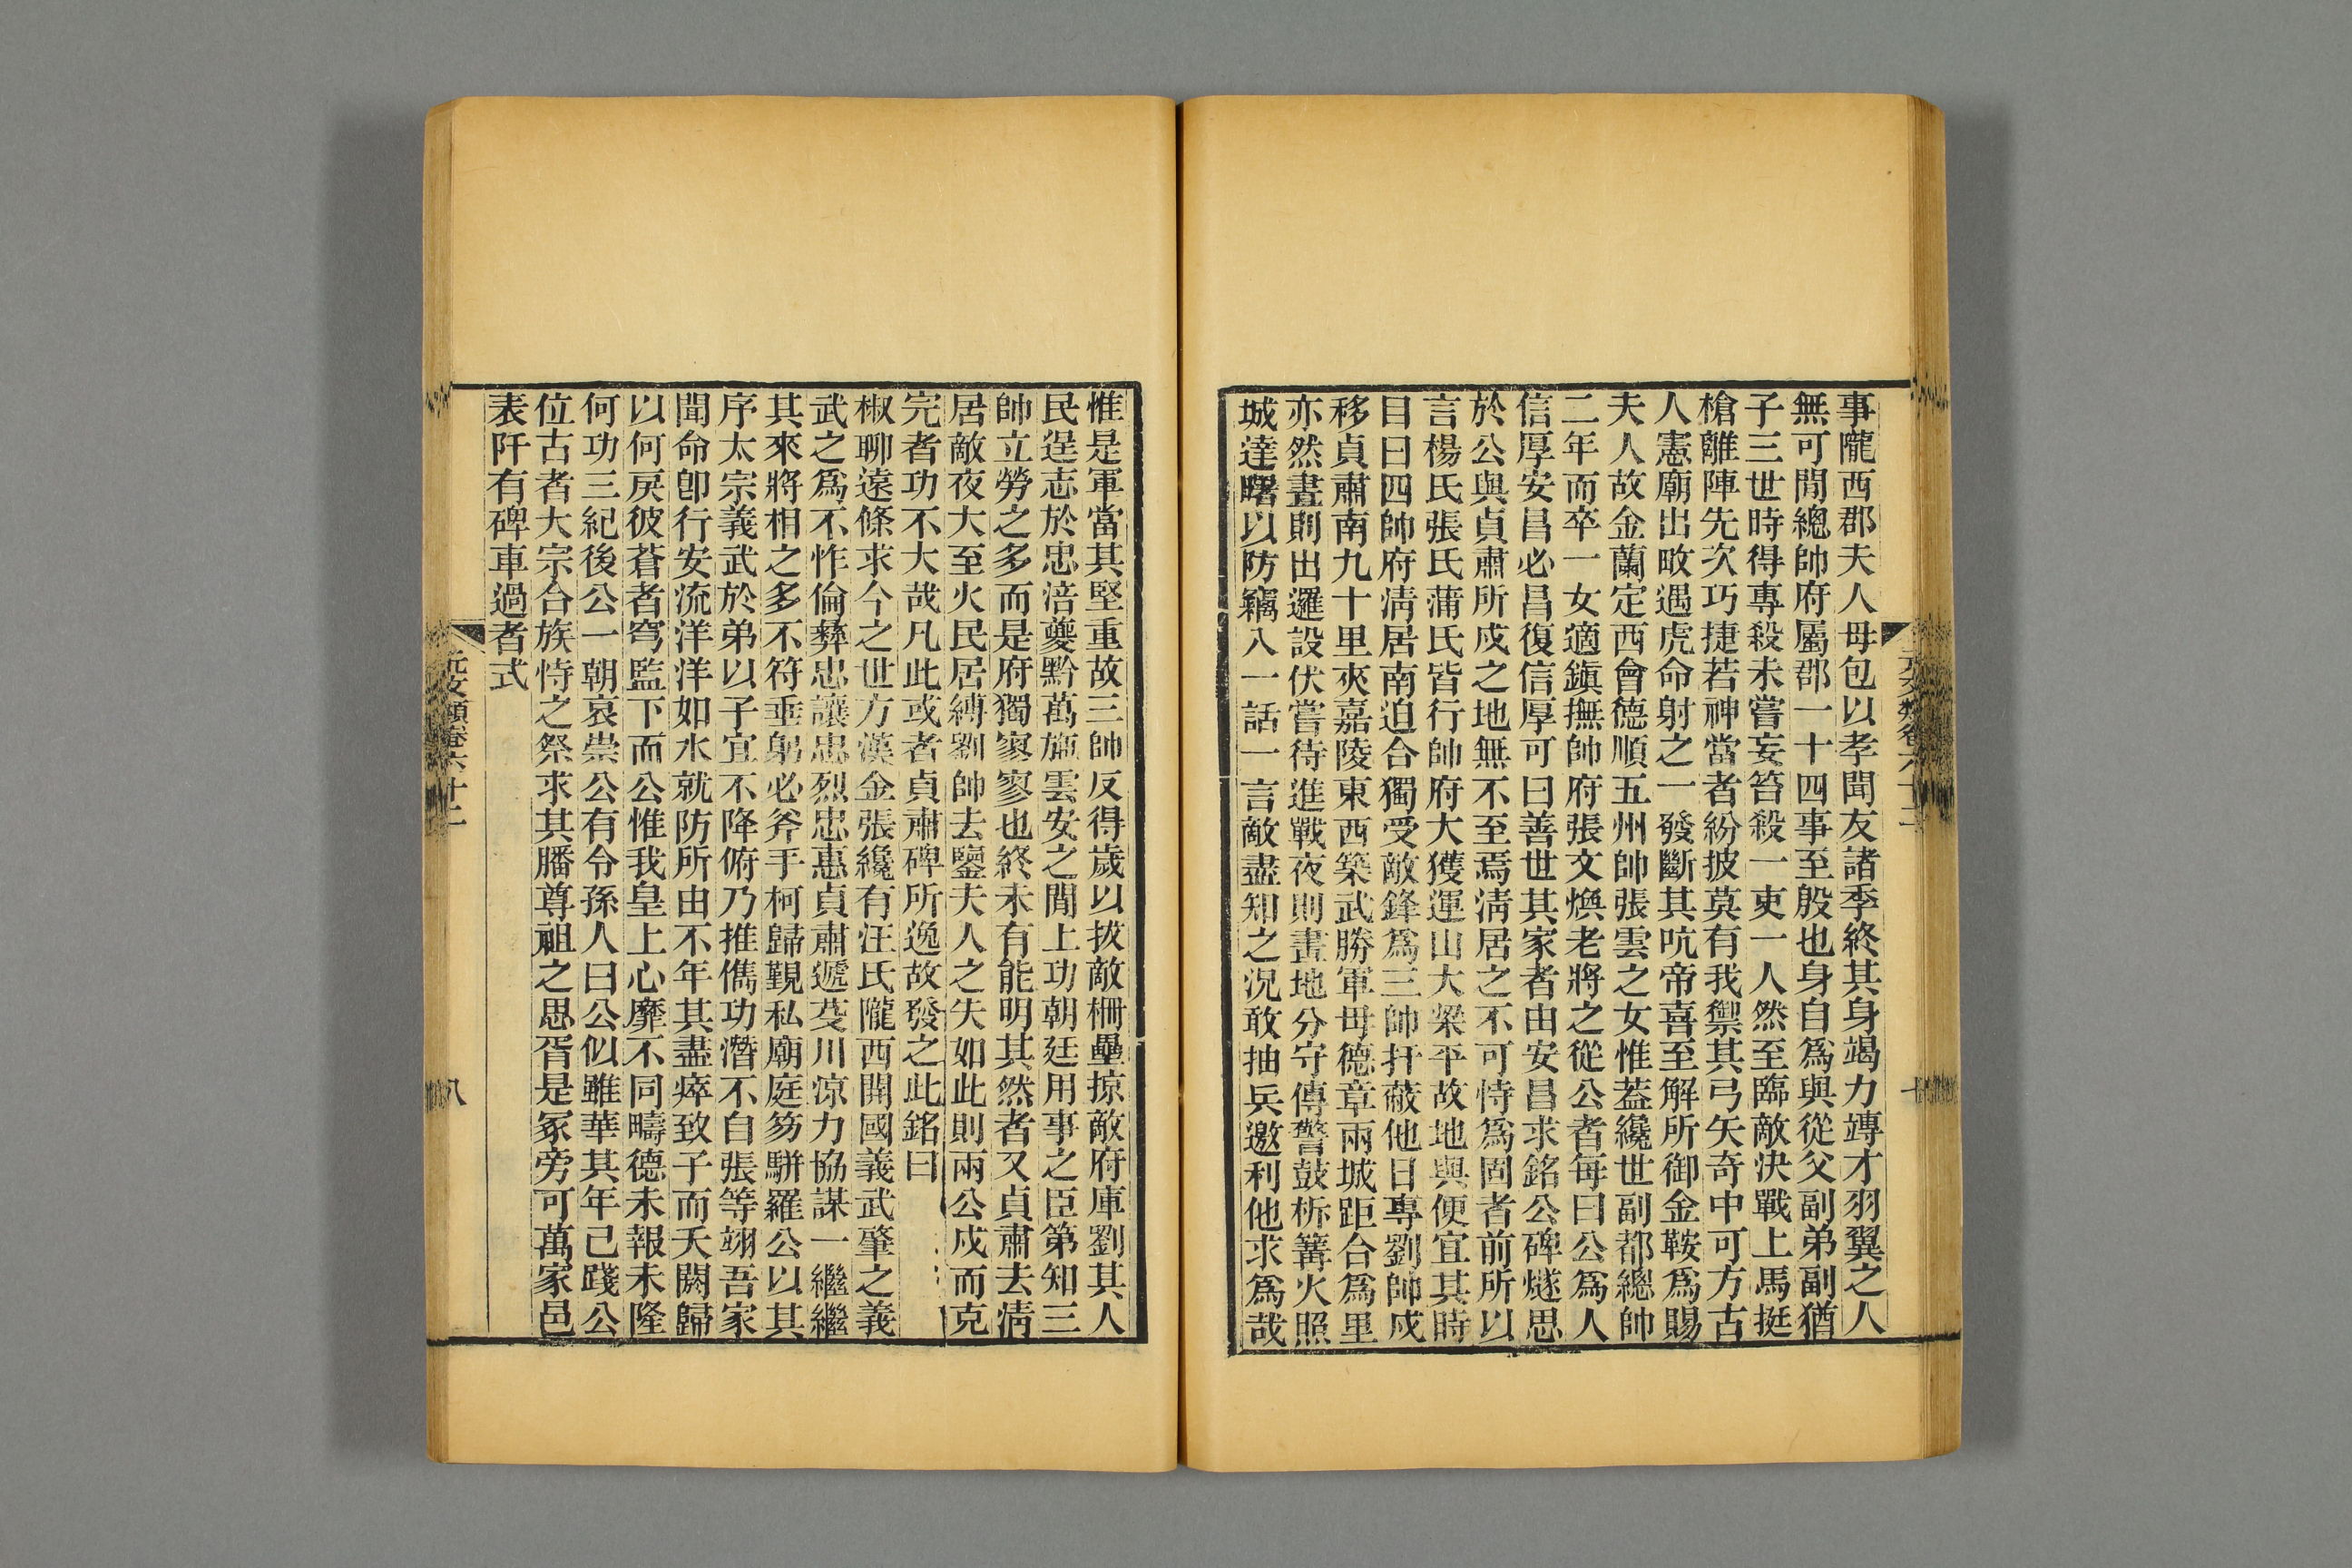 事隴西郡夫人母包以孝聞友諸季終其身竭力竱才羽翼之人
無可閒總帥府屬郡一十四事至殷也身自爲與從父副弟副猶
子三世時得專殺未嘗妄笞殺一吏一人然至臨敵決戰上馬挺
槍離陣先次巧捷若神當者紛披莫有我禦其弓矢奇中可方古
人憲廟出畋遇虎命射之一發斷其吭帝喜至解所御金鞍爲賜
夫人故金蘭定西會德順五州帥張雲之女惟蓋纔世副都總帥
二年而卒一女適鎭撫帥府張文煥老將之從公者每曰公爲人
信厚安昌必昌復信厚可曰善世其家者由安昌求銘公碑燧思
於公與貞肅所戍之地無不至焉淸居之不可恃爲固者前所以
言楊氏張氏蒲氏皆行帥府大獲運山大梁平故地與便宜其時
目曰四帥府淸居南迫合獨受敵鋒爲三帥扞蔽他日專劉帥戍
移貞肅南九十里夾嘉陵東西築武勝軍毋德章兩城距合爲里
亦然晝則出邏設伏嘗待進戰夜則畫地分守傳警鼓柝篝火照
城達曙以防竊入一話一言敵盡知之況敢抽兵邀利他求爲哉
惟是軍當其堅重故三帥反得歲以拔敵柵壘掠敵府庫劉其人
民逞志於忠涪夔黔萬施雲安之閒上功朝廷用事之臣第知三
帥立勞之多而是府獨寥寥也終未有能明其然者又貞肅去淸
居敵夜大至火民居縛劉帥去鑒夫人之失如此則兩公戍而克
完者功不大哉凡此或者貞肅碑所逸故發之此銘曰
椒聊遠條求今之世方漢金張纔有汪氏隴西開國義武肇之義
武之爲不怍倫彝忠讓忠烈忠惠貞肅遞芟川凉力協謀一繼繼
其來將相之多不符垂躬必斧手柯歸覲私廟庭笏駢羅公以其
序太宗義武於弟以子宜不降俯乃推儁功濳不自張等翊吾家
聞命卽行安流洋洋如水就防所由不年其盡瘁致子而夭闕歸
以何戾彼蒼者穹監下而公惟我皇上心靡不同疇德未報未隆
何功三紀後公一朝哀崇公有令孫人曰公似雖華其年已踐公
位古者大宗合族恃之祭求其膰尊祖之思胥是冢旁可萬家邑
表阡有碑車過者式
元文類卷六十二
八